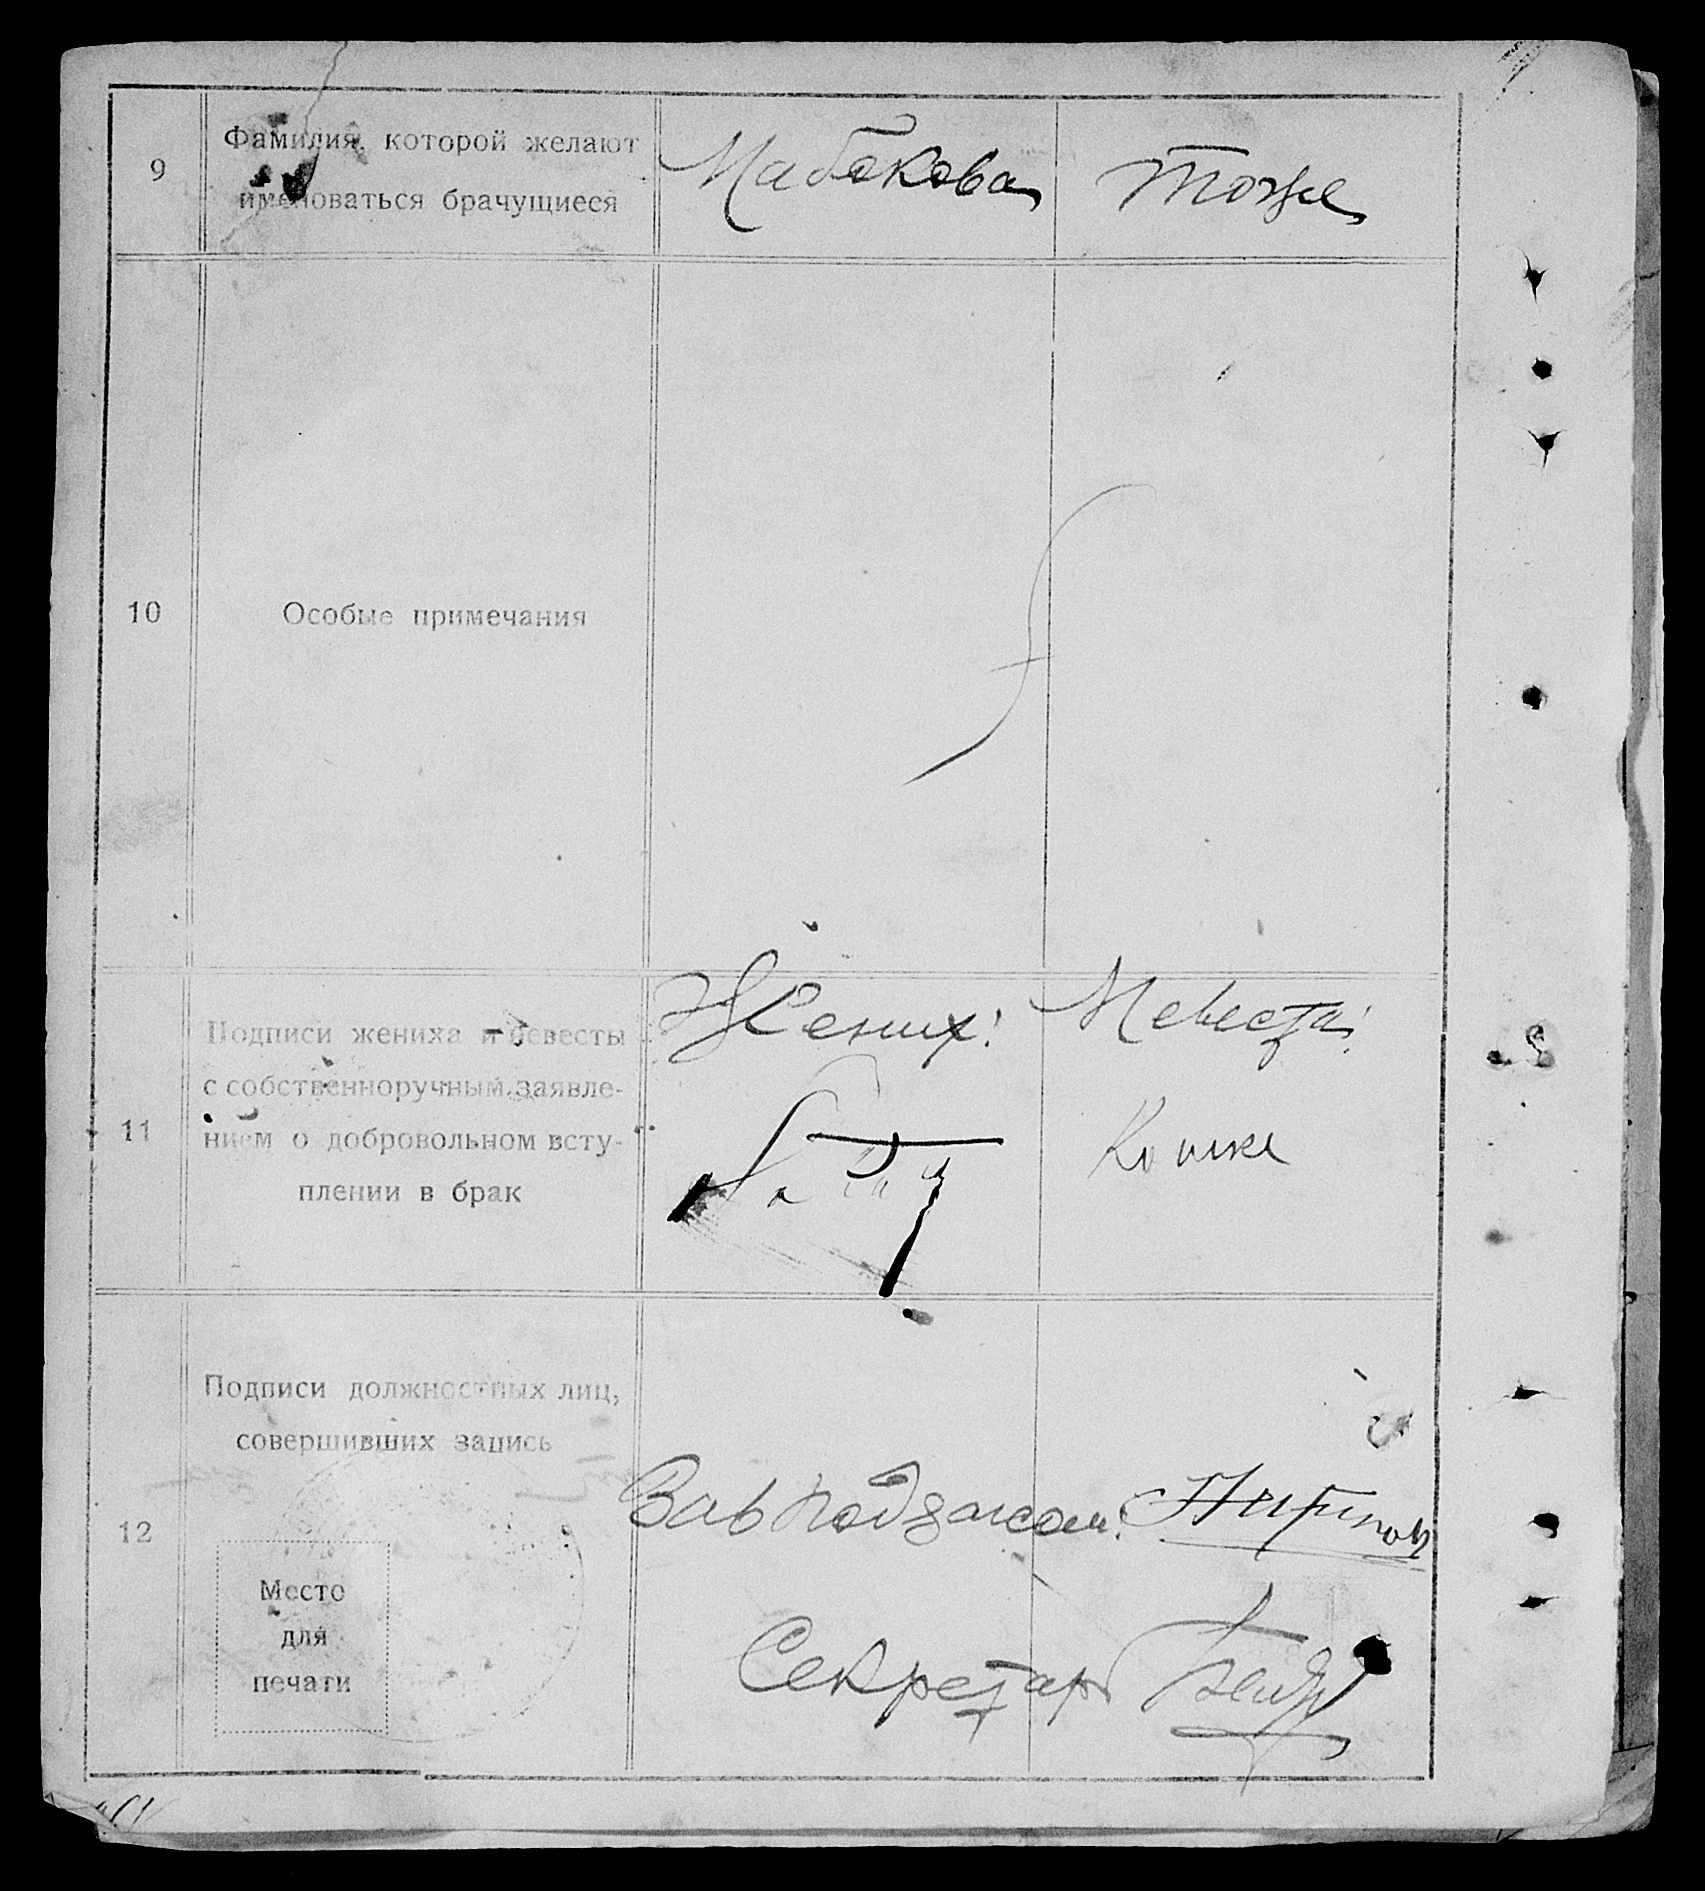 9
Фамилия, которой желают
именоваться брачущиеся
Набокова
тоже
10
Особые примечания
11
Подписи жениха и невесты
с собственноручным заявле-
нием о добровольном всту-
плении в брак
Жених:
Невеста:
12
Подписи должностных лиц,
совершивших запись
Зав подзагсом:
Секретарь
Место
для
печати